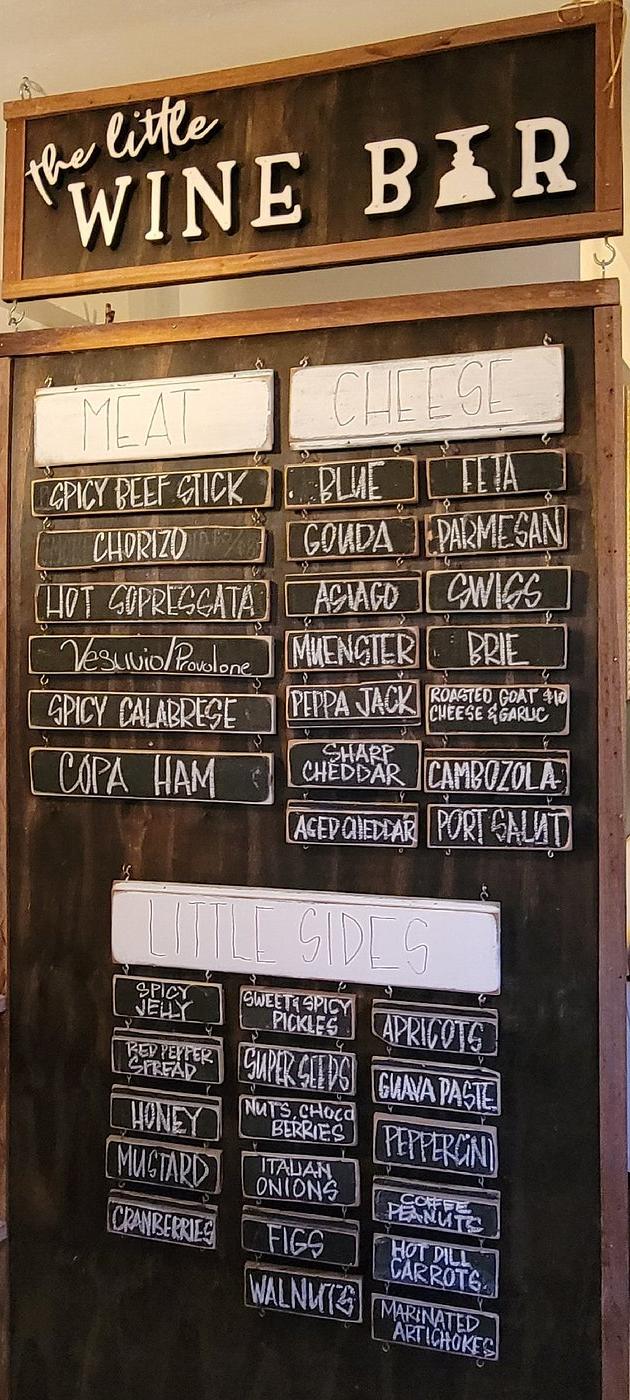 the little
WINE BAR
MEAT
SPICY BEEF STICK
CHORIZO
HOT SOPRESSATA
Vesuvio/Provolone
SPICY CALABRESE
COPA HAM
CHEESE
BLUE
GOUDA
ASIAGO
MUENSTER
PEPPA JACK
SHARP
CHEDDAR
AGED CHEDDAR
FETA
PARMESAN
SWISS
BRIE
ROASTED GOAT $10
CHEESE & GARLIC
CAMBOZOLA
PORT SALUT
LITTLE SIDES
SPICY
JELLY
RED PEPPER
SPREAD
HONEY
MUSTARD
CRANBERRIES
SWEET & SPICY
PICKLES
SUPER SEEDS
NUTS, CHOCO
BERRIES
ITALIAN
ONIONS
FIGS
WALNUTS
APRICOTS
GUAVA PASTE
PEPPERCINI
COFFEE
PEANUTS
HOT DILL
CARROTS
MARINATED
ARTICHOKES